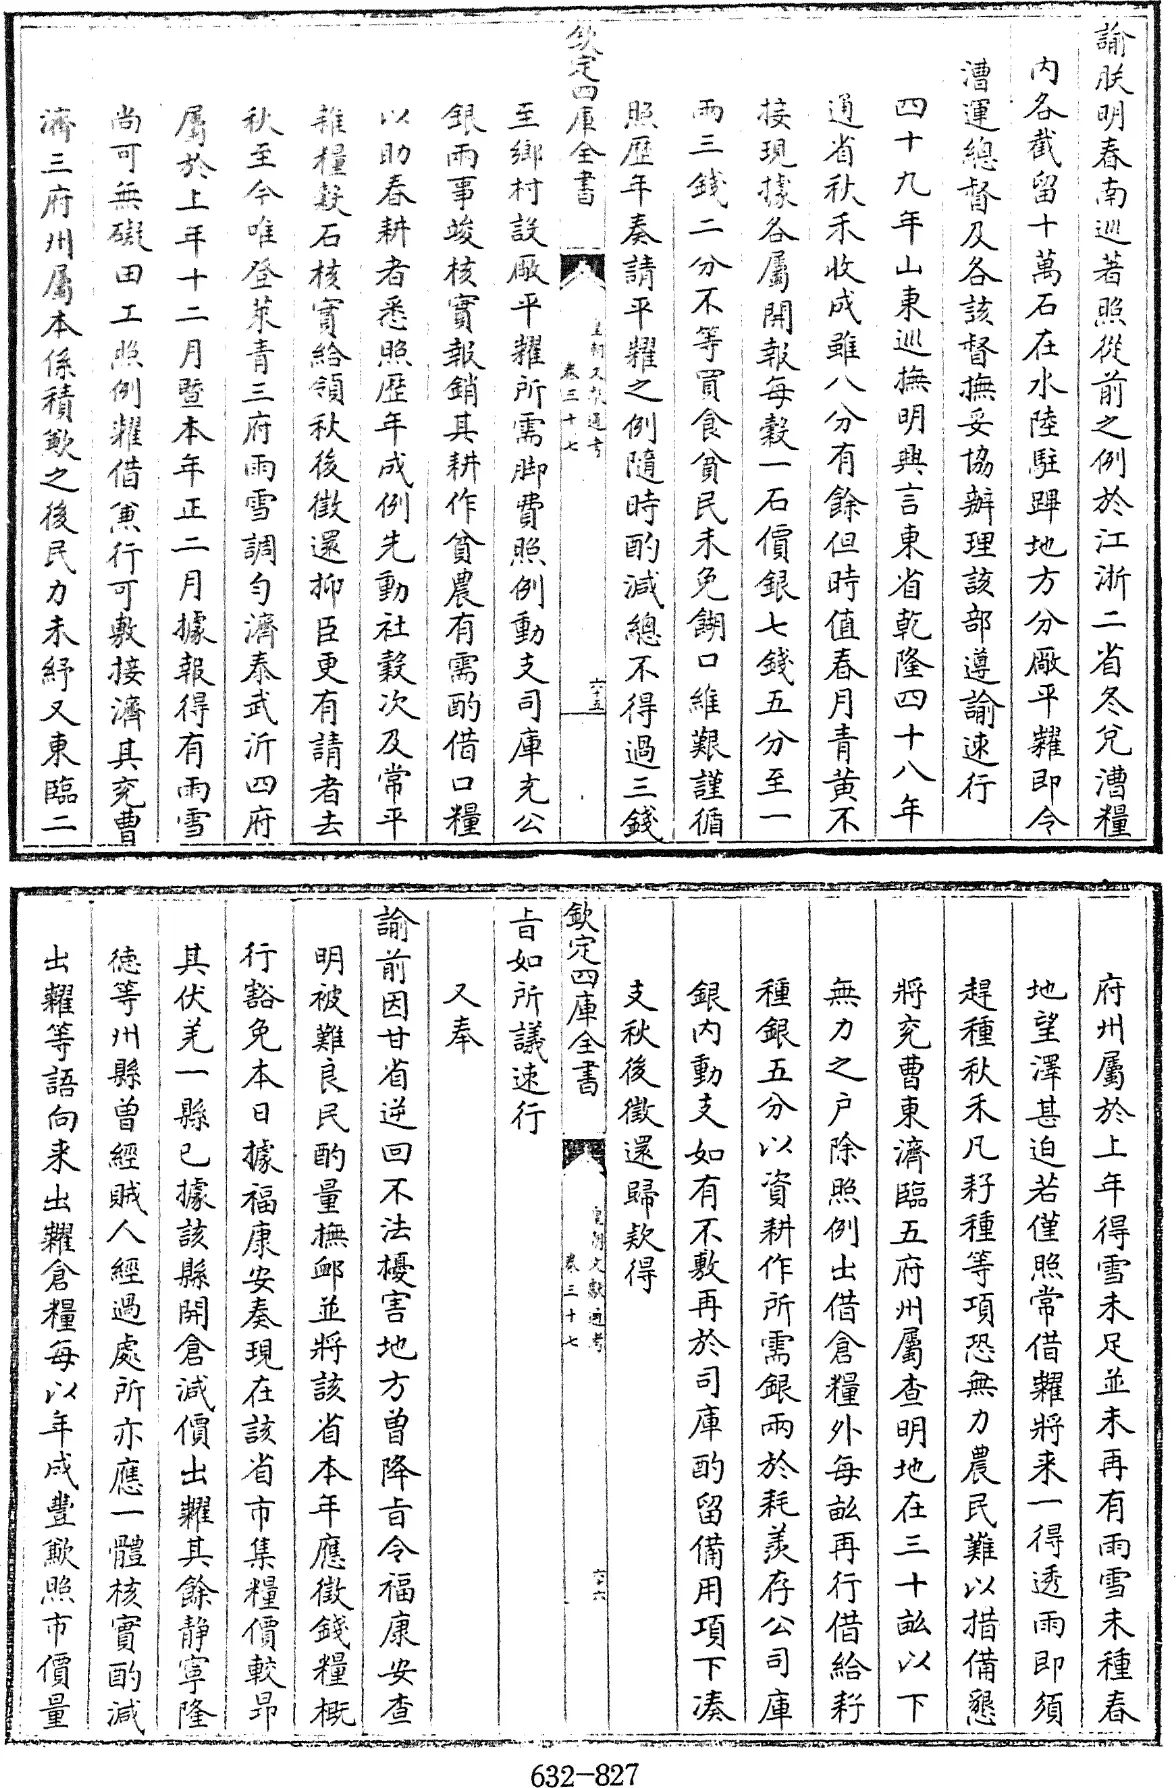 諭朕明春南巡著照從前之例於江浙二省冬兌漕糧
内各截留十萬石在水陸駐蹕地方分厰平糶即令
漕運總督及各該督撫妥協辦理該部遵諭速行
四十九年山東巡撫明興言東省乾隆四十八年
通省秋禾收成雖八分有餘但時值春月青黄不
接現據各屬開報每穀一石價銀七錢五分至一
兩三錢二分不等買食貧民未免餬口維艱謹循
照歴年奏請平糶之例隨時酌減總不得過三錢
欽定四庫全書
皇朝文獻通考
卷三十七
六十五
至鄉村設厰平糶所需脚費照例動支司庫充公
銀兩事竣核實報銷其耕作貧農有需酌借口糧
以助春耕者悉照歴年成例先動社穀次及常平
雜糧穀石核實給領秋後徵還抑臣更有請者去
秋至今唯登萊青三府雨雪調匀濟泰武沂四府
屬於上年十二月暨本年正二月據報得有雨雪
尚可無礙田工照例糶借兼行可敷接濟其兖曹
濟三府州屬本係積歉之後民力未紓又東臨二
府州屬於上年得雪未足並未再有雨雪未種春
地望澤甚迫若僅照常借糶將来一得透雨即須
趕種秋禾凡籽種等項恐無力農民難以措備懇
將兖曹東濟臨五府州屬查明地在三十畝以下
無力之户除照例出借倉糧外每畝再行借給籽
種銀五分以資耕作所需銀兩於耗羨存公司庫
銀内動支如有不敷再於司庫酌留備用項下凑
支秋後徵還歸款得
欽定四庫全書
皇朝文獻通考
卷三十七
六十六
旨如所議速行
又奉
諭前因甘省逆回不法擾害地方曾降旨令福康安查
明被難良民酌量撫卹並將該省本年應徵錢糧概
行豁免本日據福康安奏現在該省市集糧價較昂
其伏羌一縣已據該縣開倉減價出糶其餘靜寧隆
德等州縣曾經賊人經過處所亦應一體核實酌減
出糶等語向来出糶倉糧每以年成豐歉照市價量
632-827